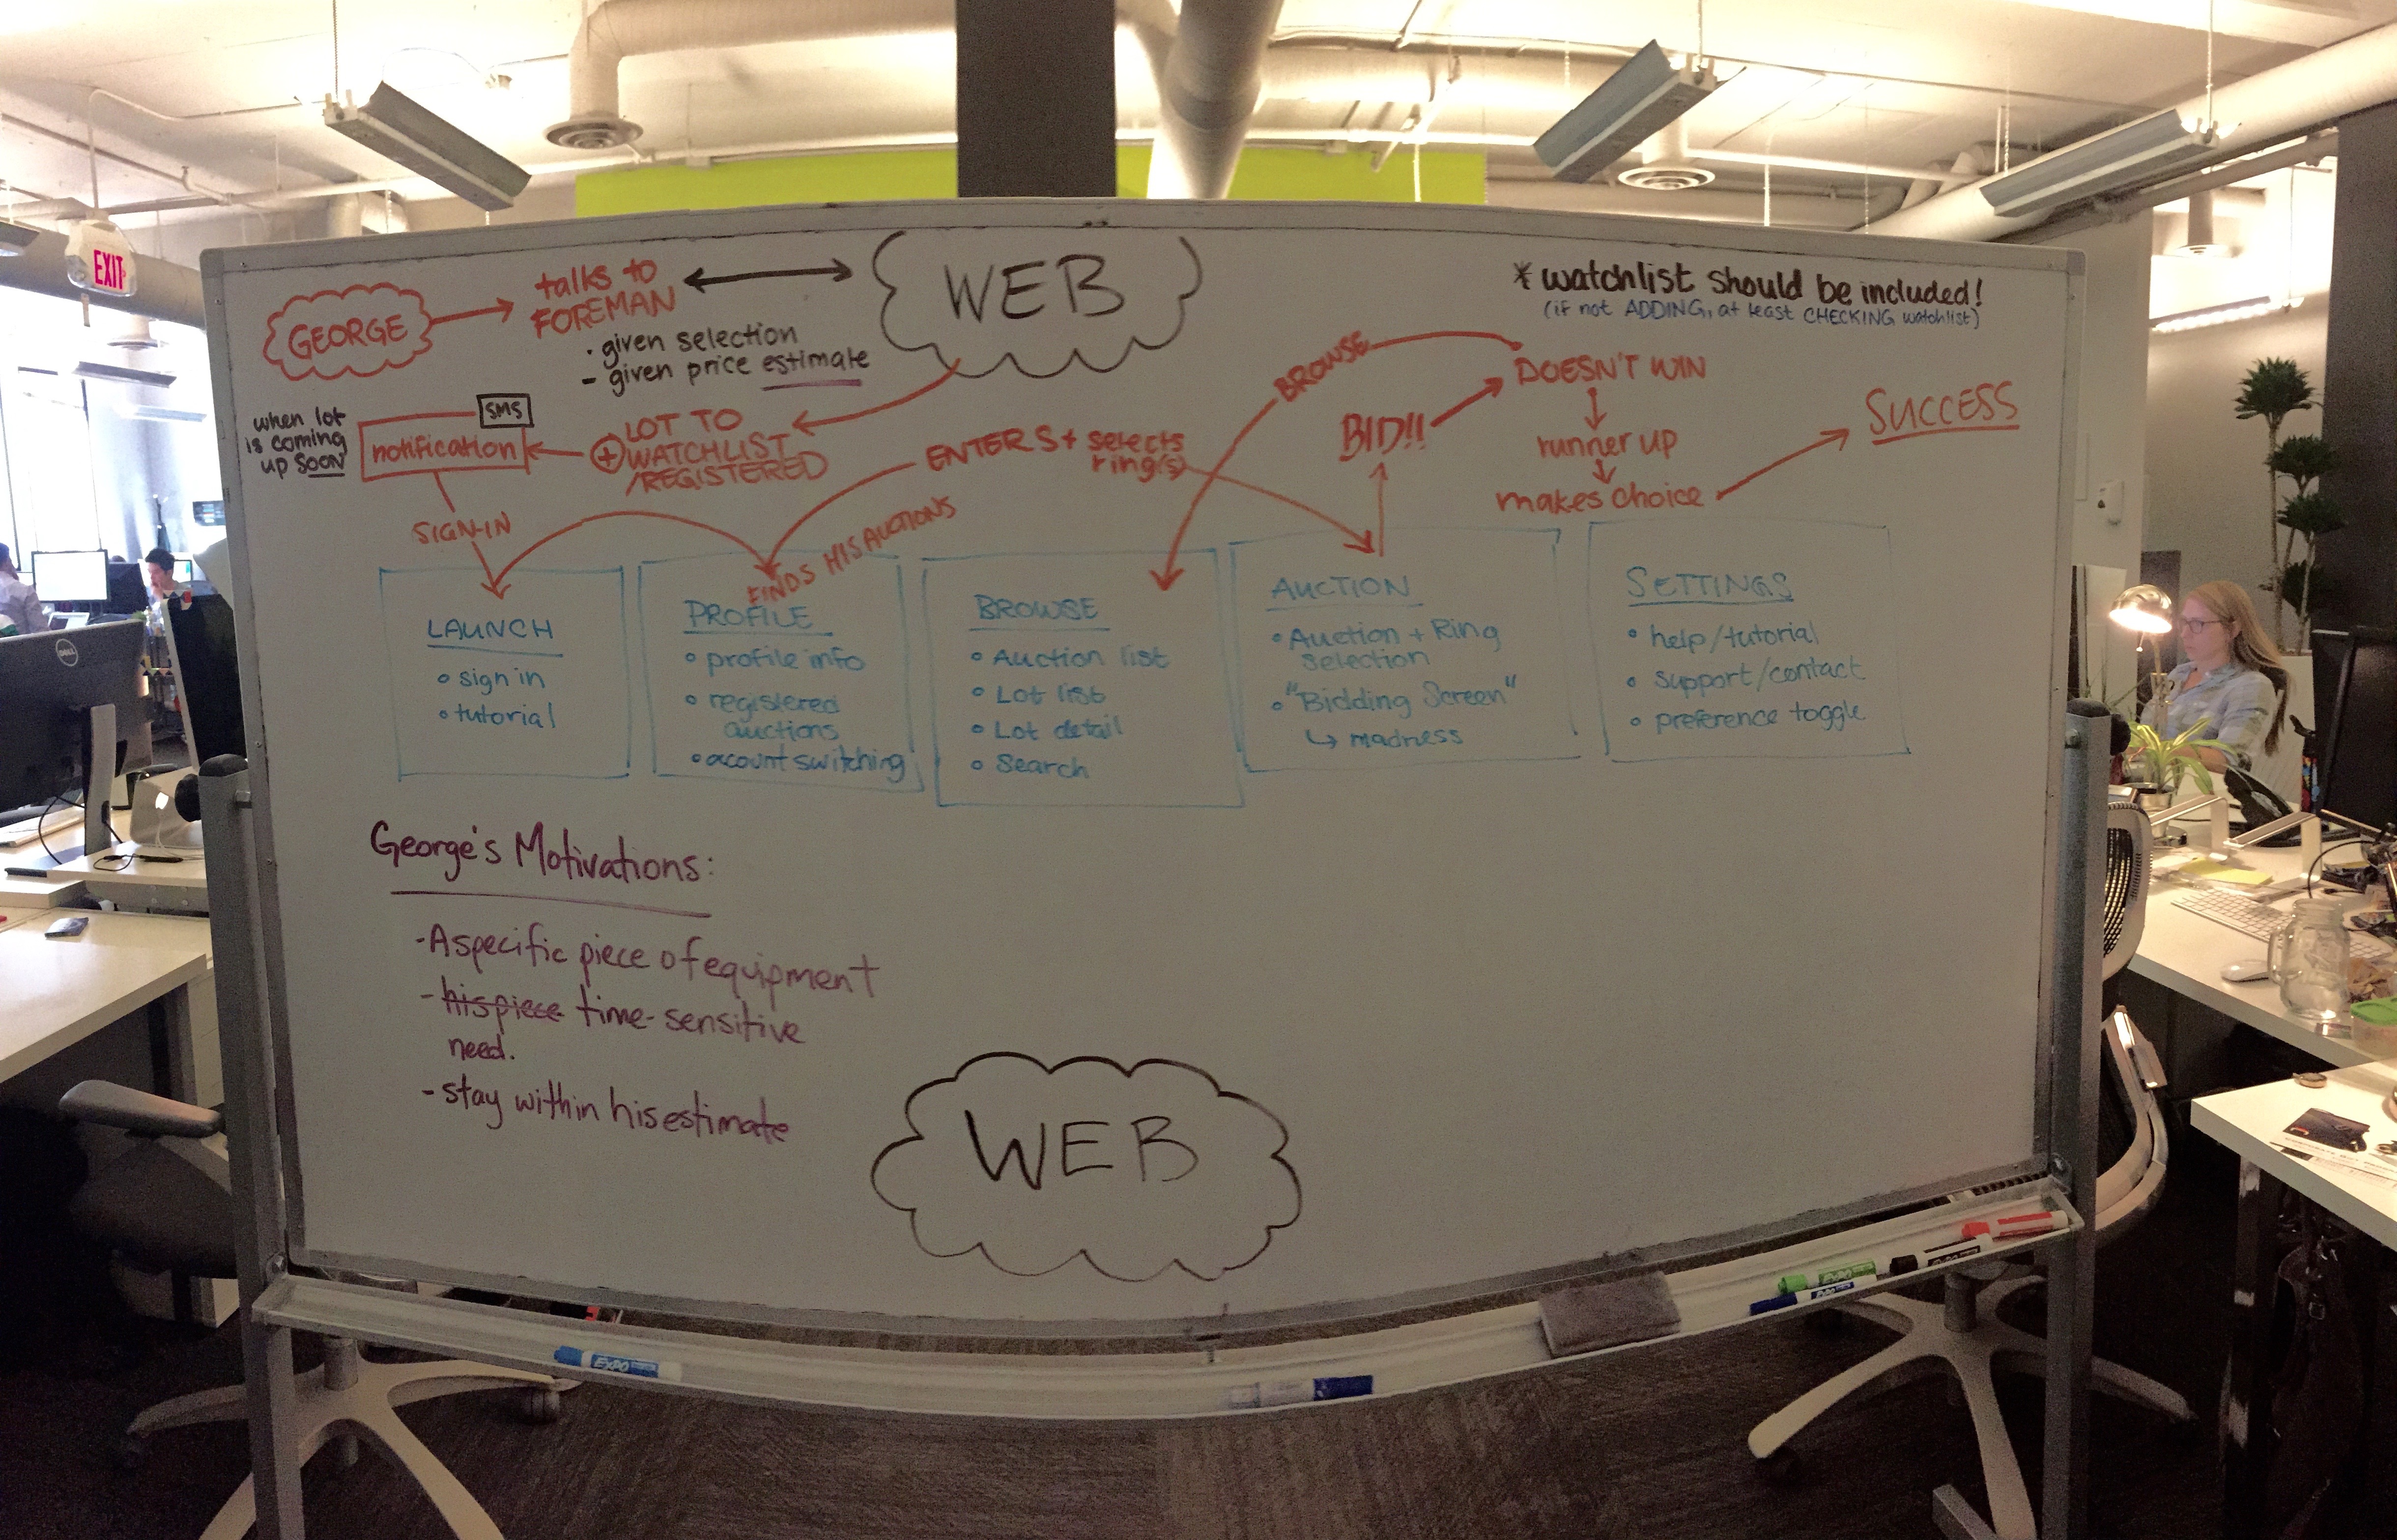 EXIT
GEORGE
talks to
FOREMAN
- given selection
- given price estimate
WEB
* watchlist should be included!
(if not ADDING, at least CHECKING watchlist)
when lot
is coming
up SOON
SMS
notification
+ LOT TO
WATCHLIST
/REGISTERED
SIGN-IN
FINDS HIS AUCTIONS
ENTERS + selects
ring(s)
BROWSE
BID!!
DOESN'T WIN
runner up
makes choice
SUCCESS
LAUNCH
• sign in
• tutorial
PROFILE
• profile info
• registered
auctions
• acount switching
BROWSE
• Auction list
• Lot list
• Lot detail
• Search
AUCTION
• Auction + Ring
selection
• "Bidding Screen"
↳ madness
SETTINGS
• help/tutorial
• support/contact
• preference toggle
George's Motivations:
- A specific piece of equipment
- his piece time-sensitive
need.
- stay within his estimate
WEB
DELL
EXPO
EXPO